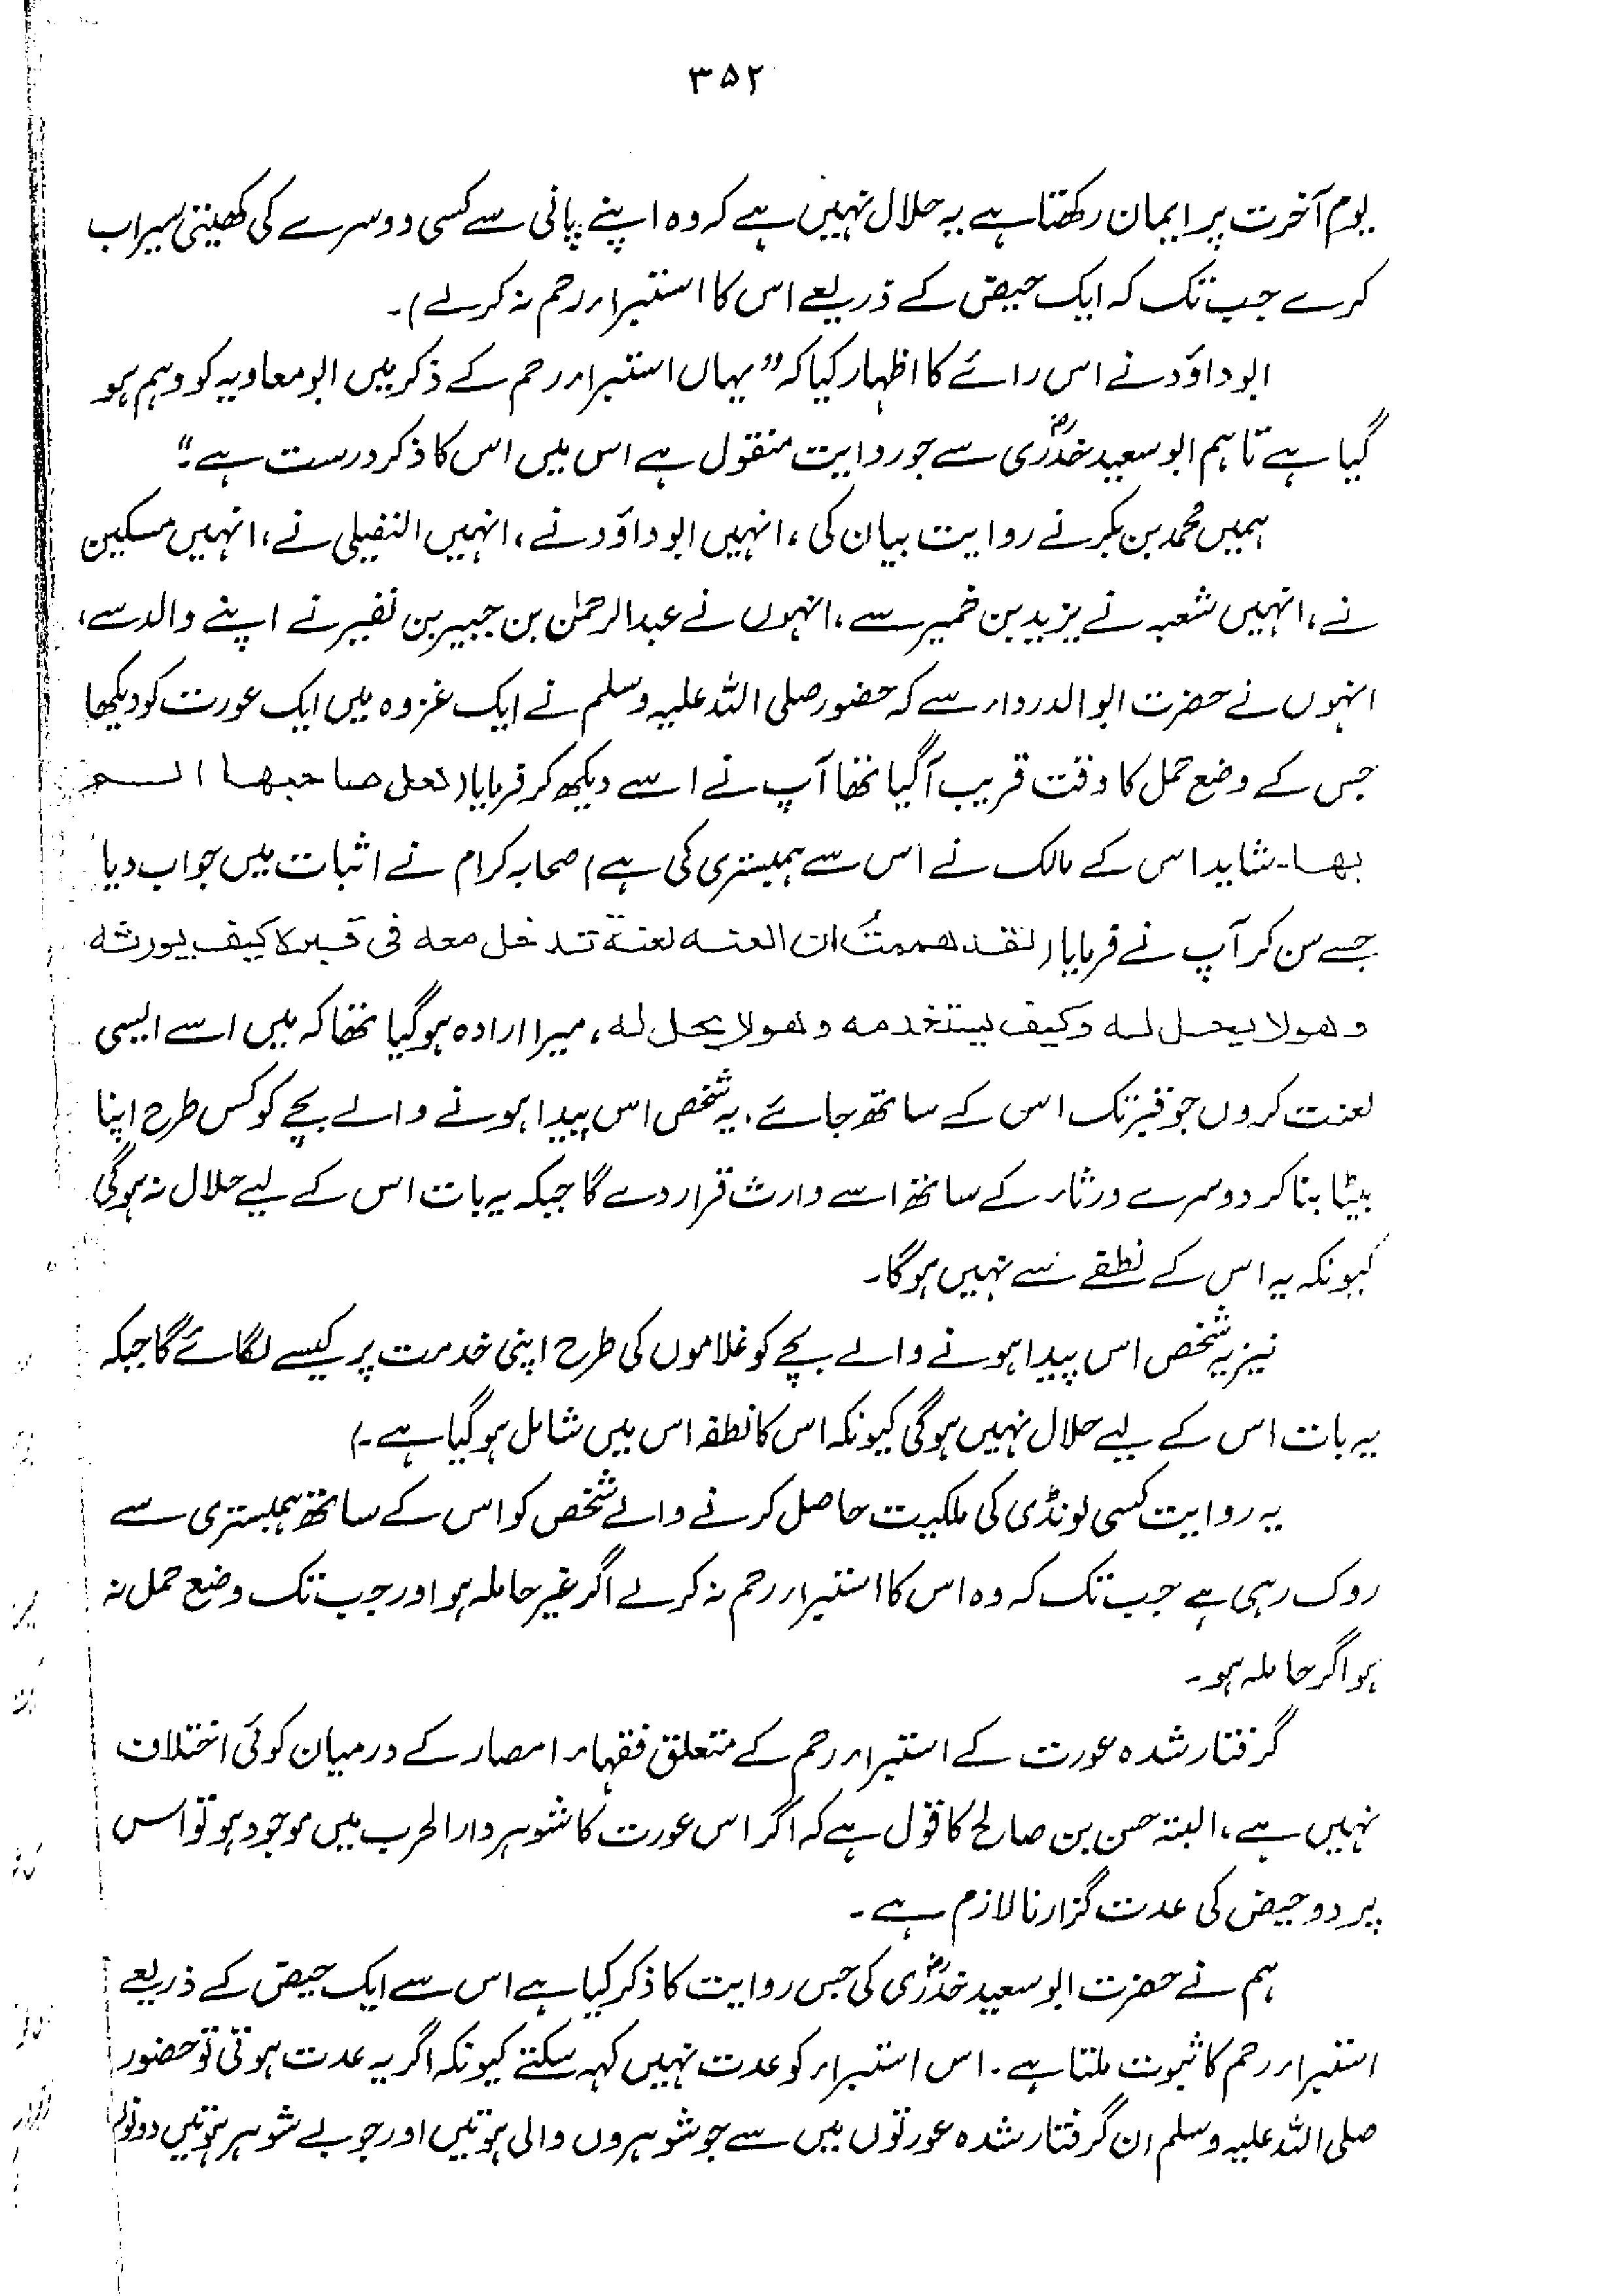 ۳۵۲
یوم آخرت پر ایمان رکھتا ہے یہ حلال نہیں ہے کہ وہ اپنے پانی سے کسی دوسرے کی کھیتی سیراب
کرے جب تک کہ ایک حیض کے ذریعے اس کا استبراء رحم نہ کرلے)۔
ابوداؤد نے اس رائے کا اظہار کیا کہ "یہاں استبراء رحم کے ذکر میں ابو معاویہ کو وہم ہو
گیا ہے تاہم ابو سعید خدریؓ سے جو روایت منقول ہے اس میں اس کا ذکر درست ہے"۔
ہمیں محمد بن بکر نے روایت بیان کی، انہیں ابوداؤد نے، انہیں النفیلی نے، انہیں مسکین
نے، انہیں شعبہ نے یزید بن خمیر سے، انہوں نے عبدالرحمٰن بن جبیر بن نفیر نے اپنے والد سے،
انہوں نے حضرت ابوالدرداء سے کہ حضور صلی اللہ علیہ وسلم نے ایک غزوہ میں ایک عورت کو دیکھا
جس کے وضع حمل کا وقت قریب آگیا تھا آپ نے اسے دیکھ کر فرمایا (لعل صاحبھا السم
بھا۔ شاید اس کے مالک نے اس سے ہمبستری کی ہے) صحابہ کرام نے اثبات میں جواب دیا
جسے سن کر آپ نے فرمایا (لقد ھممت ان العنہ لعنة تدخل معہ فی قبرہ کیف یورثہ
وھولا یحل لہ وکیف یستخدمہ وھولا یحل لہ، میرا ارادہ ہوگیا تھا کہ میں اسے ایسی
لعنت کروں جو قبر تک اس کے ساتھ جائے، یہ شخص اس پیدا ہونے والے بچے کو کس طرح اپنا
بیٹا بنا کر دوسرے ورثاء کے ساتھ اسے وارث قرار دے گا جبکہ یہ بات اس کے لیے حلال نہ ہوگی
کیونکہ یہ اس کے نطفے سے نہیں ہوگا۔
نیز یہ شخص اس پیدا ہونے والے بچے کو غلاموں کی طرح اپنی خدمت پر کیسے لگائے گا جبکہ
یہ بات اس کے لیے حلال نہیں ہوگی کیونکہ اس کا نطفہ اس میں شامل ہوگیا ہے۔)
یہ روایت کسی لونڈی کی ملکیت حاصل کرنے والے شخص کو اس کے ساتھ ہمبستری سے
روک رہی ہے جب تک کہ وہ اس کا استبراء رحم نہ کرلے اگر غیر حاملہ ہو اور جب تک وضع حمل نہ
ہو اگر حاملہ ہو۔
گرفتار شدہ عورت کے استبراء رحم کے متعلق فقہاء امصار کے درمیان کوئی اختلاف
نہیں ہے، البتہ حسن بن صالح کا قول ہے کہ اگر اس عورت کا شوہر دارالحرب میں موجود ہو تو اس
پر دو حیض کی عدت گزارنا لازم ہے۔
ہم نے حضرت ابو سعید خدریؓ کی جس روایت کا ذکر کیا ہے اس سے ایک حیض کے ذریعے
استبراء رحم کا ثبوت ملتا ہے۔ اس استبراء کو عدت نہیں کہہ سکتے کیونکہ اگر یہ عدت ہوتی تو حضور
صلی اللہ علیہ وسلم ان گرفتار شدہ عورتوں میں سے جو شوہروں والی ہوتیں اور جو بے شوہر ہوتیں دونوں